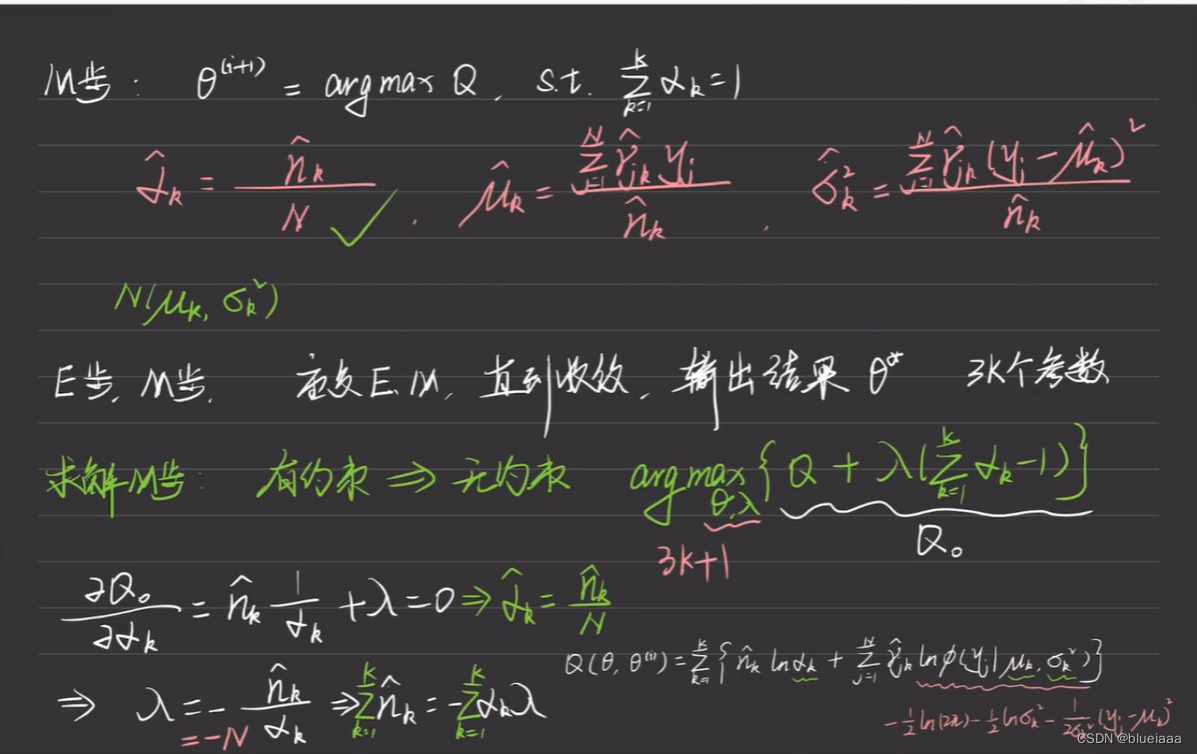 M步: θ^(i+1) = argmax Q, s.t. Σ_{k=1}^{K} α_k = 1
α̂_k = n̂_k / N ✓ . μ̂_k = Σ_{j=1}^{N} γ̂_{jk} y_j / n̂_k . σ̂_k² = Σ_{j=1}^{N} γ̂_{jk} (y_j − μ̂_k)² / n̂_k
N(μ_k, σ_k²)
E步, M步, 重复E.M, 直到收敛, 输出结果 θ* 3K个参数
求解M步: 有约束 ⇒ 无约束 argmax_{θ,λ} {Q + λ(Σ_{k=1}^{K} α_k − 1)}
3K+1 Q₀
∂Q₀/∂α_k = n̂_k 1/α_k + λ = 0 ⇒ α̂_k = n̂_k / N
Q(θ, θ^(i)) = Σ_{k=1}^{K} { n̂_k ln α_k + Σ_{j=1}^{N} γ̂_{jk} ln φ(y_j | μ_k, σ_k²) }
⇒ λ = − n̂_k / α_k ⇒ Σ_{k=1}^{K} n̂_k = − Σ_{k=1}^{K} α_k λ
= −N
−½ ln(2π) − ½ ln σ_k² − 1/(2σ_k²) (y_j − μ_k)²
CSDN @blueiaaa